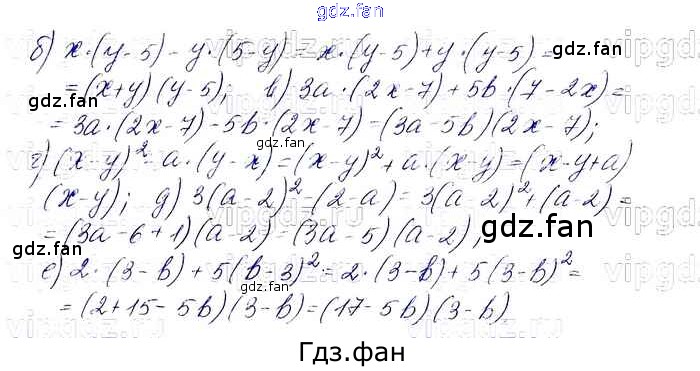 gdz.fan
б) x·(y-5)-y·(5-y)=x·(y-5)+y·(y-5)=
=(x+y)(y-5); в) 3a·(2x-7)+5b·(7-2x)=
=3a·(2x-7)-5b·(2x-7)=(3a-5b)(2x-7);
г) (x-y)²-a·(y-x)=(x-y)²+a·(x-y)=(x-y+a)
(x-y); д) 3(a-2)²-(2-a)=3(a-2)²+(a-2)=
=(3a-6+1)(a-2)=(3a-5)(a-2);
е) 2·(3-b)+5(b-3)²=2·(3-b)+5(3-b)²=
=(2+15-5b)(3-b)=(17-5b)(3-b)
gdz.fan
gdz.fan
gdz.fan
gdz.fan
gdz.fan
gdz.fan
Гдз.фан